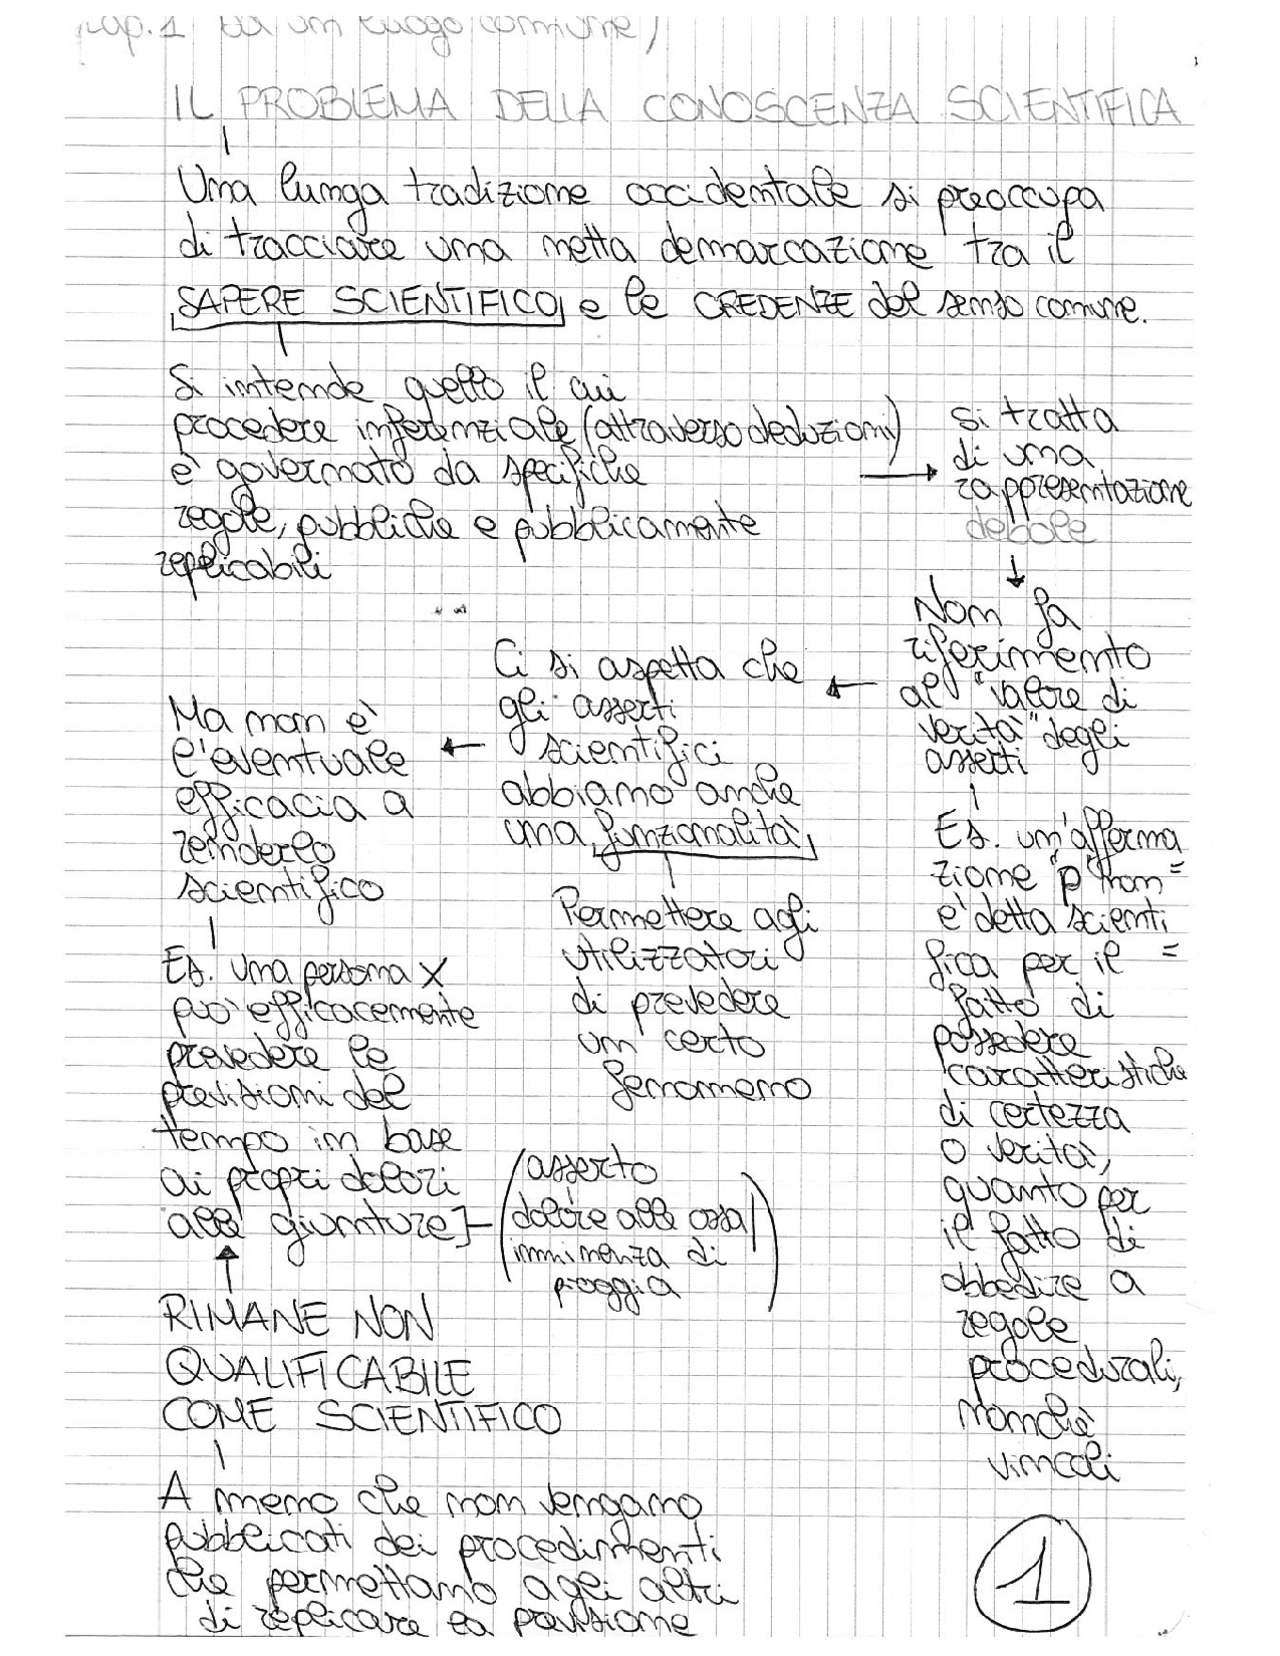 (cap. 1 da un luogo comune)
IL PROBLEMA DELLA CONOSCENZA SCIENTIFICA
Una lunga tradizione occidentale si preoccupa
di tracciare una netta demarcazione tra il
SAPERE SCIENTIFICO e le CREDENZE del senso comune.
Si intende quello il cui
procedere inferenziale (attraverso deduzioni)
è governato da specifiche
regole, pubbliche e pubblicamente
replicabili
si tratta
di una
rappresentazione
debole
Non fa
riferimento
al "valore di
verità" degli
asserti
Es. un'afferma
zione "p" non =
è detta scienti
fica per il =
fatto di
possedere
caratteristiche
di certezza
o verità,
quanto per
il fatto di
obbedire a
regole
procedurali,
nonchè
vincoli
Ci si aspetta che
gli asserti
scientifici
abbiamo anche
una funzionalità
Permettere agli
utilizzatori
di prevedere
un certo
fenomeno
Ma non è
l'eventuale
efficacia a
renderlo
scientifico
Es. una persona X
può efficacemente
prevedere le
previsioni del
tempo in base
ai propri dolori
alle giunture]
(asserto
dolore alle ossa/
imminenza di
pioggia)
RIMANE NON
QUALIFICABILE
COME SCIENTIFICO
A meno che non vengano
pubblicati dei procedimenti
che permettano agli altri
di replicare la previsione
1